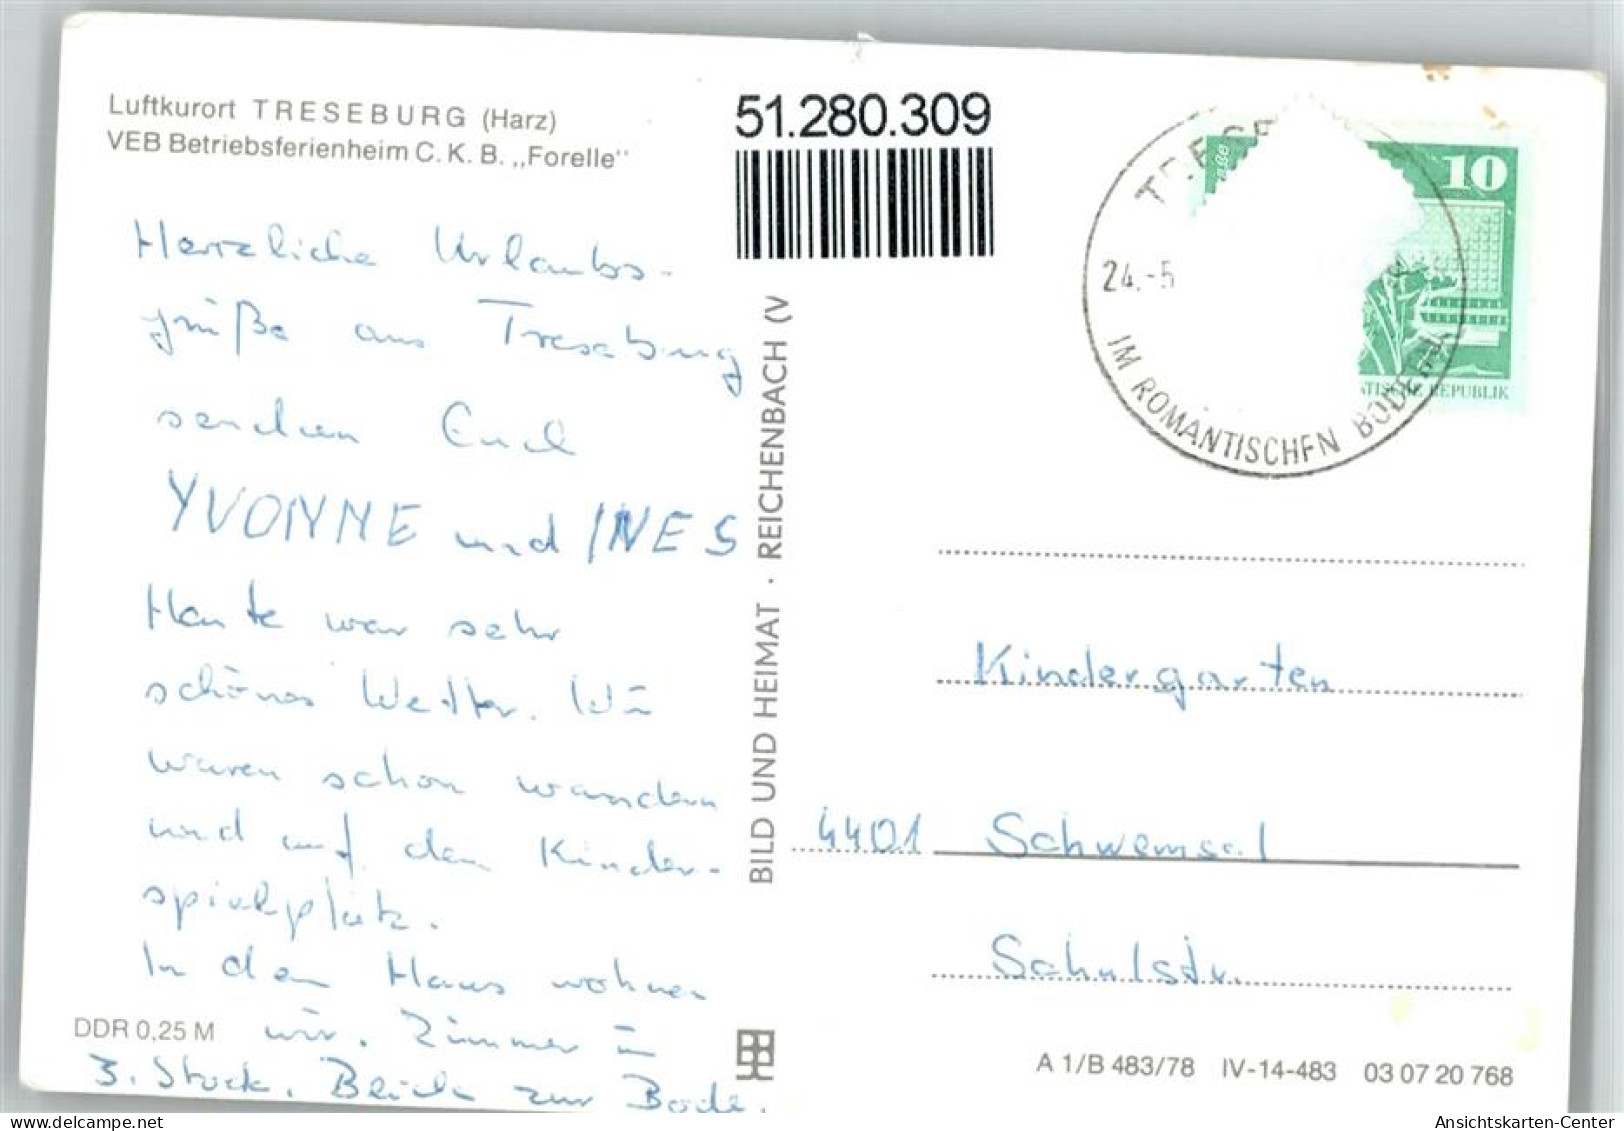 Luftkurort TRESEBURG (Harz)
VEB Betriebsferienheim C. K. B. „Forelle"
Herzliche Urlaubs-
grüße aus Treseburg
senden Euch
YVONNE und INES
Heute war sehr
schönes Wetter. Wir
waren schon wandern
und auf dem Kinder-
spielplatz.
In dem Haus wohnen
wir. Zimmer im
3. Stock. Blick zur Bode.
DDR 0,25 M
BILD UND HEIMAT · REICHENBACH (V
51.280.309
10
TISCHE REPUBLIK
24.-5
IM ROMANTISCHEN BODETAL
Kindergarten
4401 Schwemsal
Schulstr.
A 1/B 483/78 IV-14-483 03 07 20 768
Ansichtskarten-Center